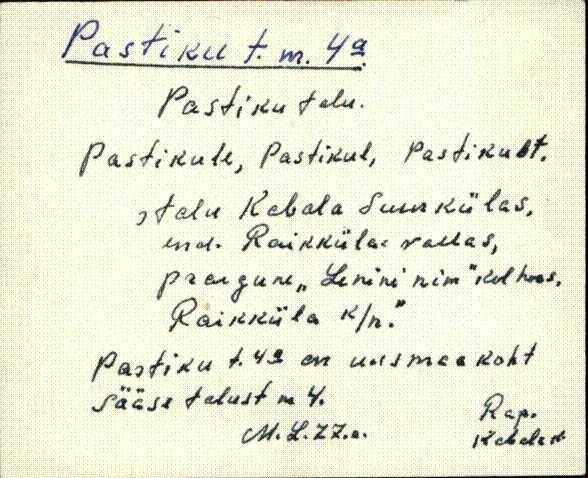 Pastiku t. m. 4a
Pastiku talu.
Pastikule, Pastikul, Pastikult.
talu Kabala Suurkülas,
end. Raikküla vallas,
praegune „Lenini nim" kolhoos,
Raikküla k/n."
Pastiku t. 4a on uusmaakoht
Sääse talust m 4.
M. L. 77. a.
Rap.
Kabala k